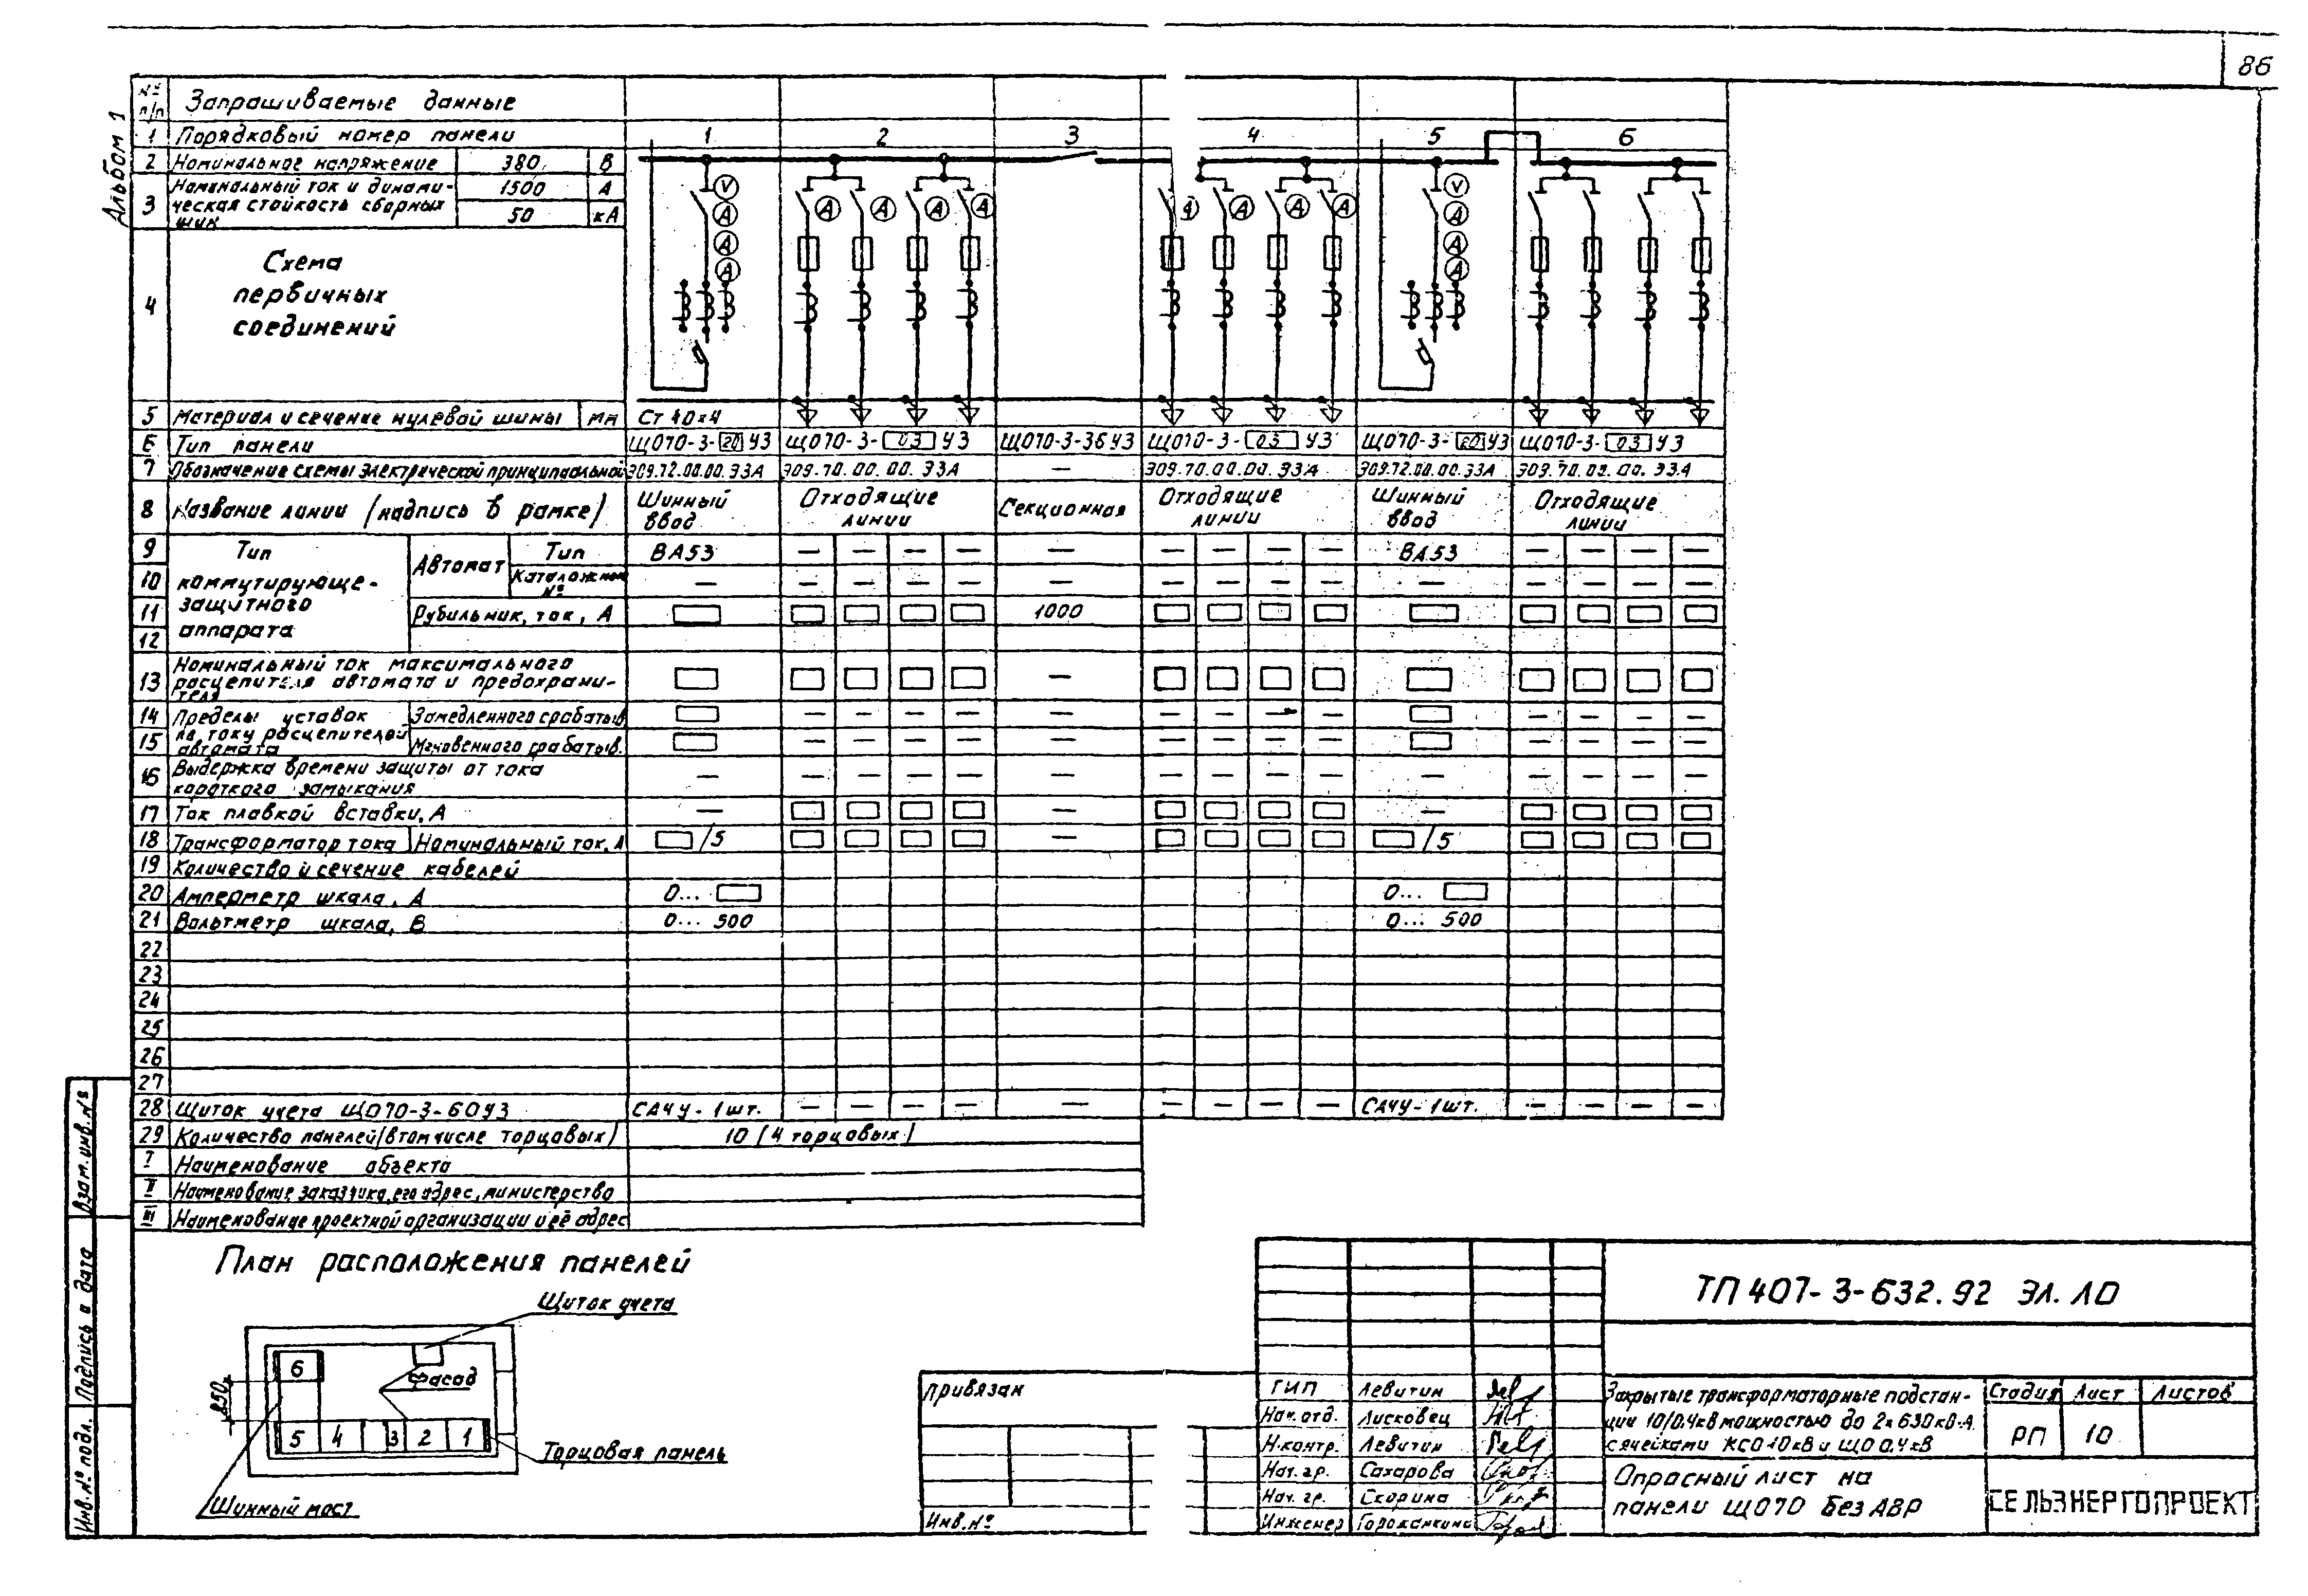 86
Альбом 1
№ п/п Запрашиваемые данные
1 Порядковый номер панели 1 2 3 4 5 6
2 Номинальное напряжение 380 В
3 Номинальный ток и динами- 1500 А
ческая стойкость сборных шин 50 кА
4 Схема первичных соединений
V A A A A A A A A A A V A A A
5 Материал и сечение нулевой шины мм Ст 40×4
6 Тип панели ЩО70-3-20У3 ЩО70-3-03У3 ЩО70-3-36У3 ЩО70-3-03У3 ЩО70-3-20У3 ЩО70-3-03У3
7 Обозначение схемы электрической принципиальной Э09.72.00.00.Э3А Э09.70.00.00.Э3А — Э09.70.00.00.Э3А Э09.72.00.00.Э3А Э09.70.00.00.Э3А
8 Название линии (надпись в рамке) Шинный ввод Отходящие линии Секционная Отходящие линии Шинный ввод Отходящие линии
9 Тип Автомат Тип ВА53 — — — — — — — — — ВА53 — — — —
10 коммутирующе- Каталожный № — — — — — — — — — — — — — — —
11 защитного Рубильник, ток, А 1000
12 аппарата
13 Номинальный ток максимального
расцепителя автомата и предохрани-
теля —
14 Пределы уставок Замедленного срабатыв. — — — — — — — — — — — — —
15 по току расцепителей автомата Мгновенного срабатыв. — — — — — — — — — — — — —
16 Выдержка времени защиты от тока
короткого замыкания — — — — — — — — — — — — — — —
17 Ток плавкой вставки, А — — —
18 Трансформатор тока Номинальный ток, А /5 — /5
19 Количество и сечение кабелей
20 Амперметр шкала, А 0... 0...
21 Вольтметр шкала, В 0... 500 0... 500
22
23
24
25
26
27
28 Щиток учета ЩО70-3-60У3 САЧУ-1шт. — — — — — — — — — САЧУ-1шт. — — — —
29 Количество панелей (в том числе торцовых) 10 (4 торцовых)
I Наименование объекта
II Наименование заказчика, его адрес, министерство
III Наименование проектной организации и её адрес
План расположения панелей
Щиток учета
6
Фасад
850
5 4 3 2 1
Торцовая панель
Шинный мост
Взам. инв. №
Подпись и дата
Инв. № подл.
Привязан
Инв. №
ТП 407-3-632.92 ЭЛ.ЛО
ГИП Левитин
Нач. отд. Лисковец
Н. контр. Левитин
Нач. гр. Сахарова
Нач. гр. Скорина
Инженер Горожанкина
Закрытые трансформаторные подстан-
ции 10/0,4 кВ мощностью до 2×630 кВ·А
с ячейками КСО 10 кВ и ЩО 0,4 кВ
Стадия Лист Листов
РП 10
Опросный лист на
панели ЩО70 без АВР
СЕЛЬЭНЕРГОПРОЕКТ